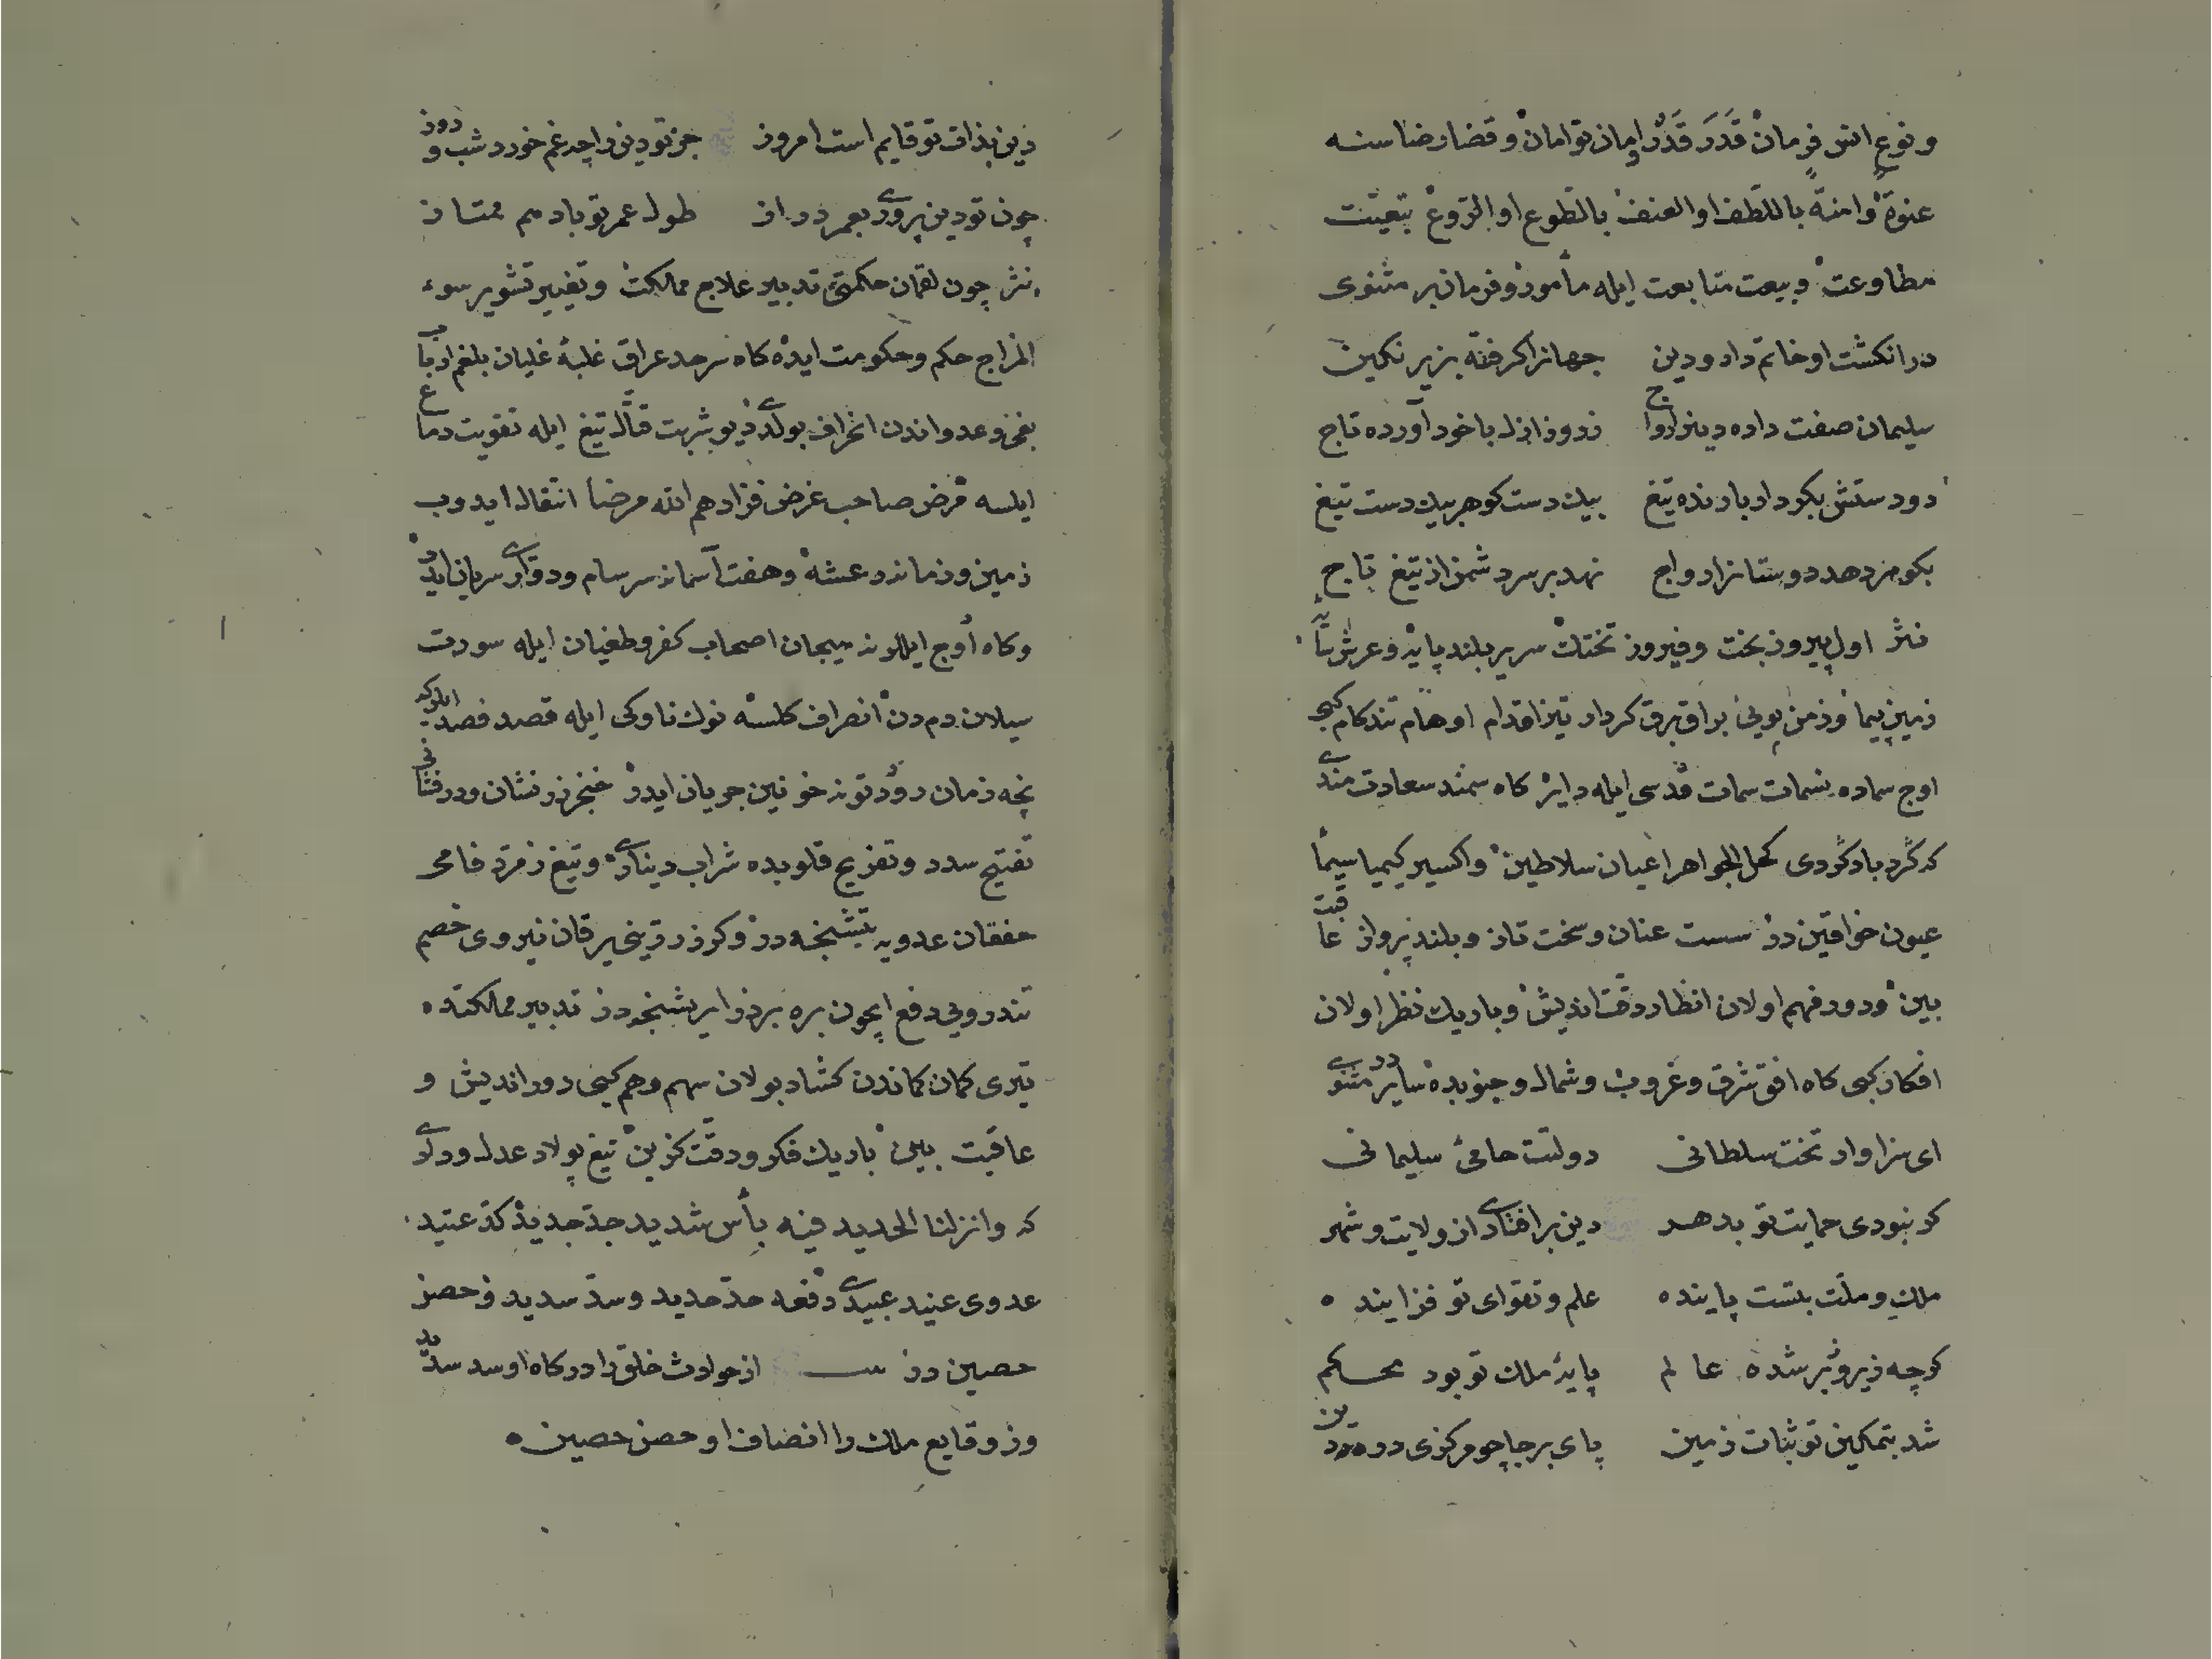 و نوع انس فرمان قَدَرَ قَدَّر و امان توامان و قضا رضاسنه
عنوةً وامنةً باللطف او العنف بالطوع او الروع بتعیّت
مطاوعت و بیعت متابعت ایله مأمور و فرمانبر مثنوی
در انکشت او خاتم داد و دین جهانرا کرفته بزیر نکین
سلیمان صفت داده دینرا رواج ز روز ازل با خود آورده تاج
دو دستش بکردار بارنده تیغ بیك دست کوهر بیك دست تیغ
بکوهر دهد دوستانرا رواج نهد بر سر دشمن از تیغ تاج
نثر اول پیروز بخت و فیروز تختك سریر بلند پایه و عرش
زمین پیما و زمن پویی براق برق کردار تیز اقدام اوهام تند کام کبی
اوج سماده نسمات سمات قدسی ایله دایر کاه سمند سعادت مندی
که کرد باد کردی کحل الجواهر اعیان سلاطین و اکسیر کیمیا سیمای
عیون خواقین در سست عنان و سخت تاز و بلند پرواز عاقبت
بین و دور فهم اولان انظار دقت اندیش و باریك نظر اولان
افکار کبی کاه افق شرق و غروب و شمال و جنوبده سایر در مثنوی
ای سزاوار تخت سلطانی دولتت حامی سلیمانی
کر نبودی حمایت تو بدهر دین برافتادی از ولایت و شهر
ملك و ملت بتست پاینده علم و تقوای تو فزاینده
کرچه زیر و زبر شده عالم پایهٔ ملك تو بود محکم
شد بتمکین تو ثبات زمین پای برجا چو مرکزی در
دین بذات تو قایم است امروز جز تو دین را چه غم خورد شب و روز
چون تو دین پروری بعمر دراز طول عمر تو باد هم ممتاز
نثر چون لقمان حکمتی تدبیر علاج ممالکت و تغییر تشویر سوء
المزاج حکم و حکومت ایده کاه سرحد عراق غلبهٔ غلیان بلغم ارباب
بغی و عدواندن انحراف بولدی ایو شربت قتّال تیغ ایله تقویت دماغ
ایلسه مرض صاحب غرض فزادهم الله مرضا انتقال ایدوب
زمین و زمانه رعشه و هفت آسمانه سرسام و دوّاری سریان ایدر
و کاه اوج ایللرنده هیجان اصحاب کفر و طغیان ایله سورت
سیلان دم دن انصراف کلسه نوك ناوکی ایله قصد فصد ایلر که
نچه زمان رود تونه خونین جریان ایدر خنجر زرنشان و درفشانی
تفتیح سدد و تفریح قلوبده شراب دیناری و تیغ زمرد فامی
خفقان عدویه در و کرز زرینی یرقان نیروی خصم
تندرویی دفع ایچون در تدبیر ممالکتده
تیری کمان کماندن کشاد بولان سهم وهم کبی دور اندیش و
عاقبت بین باریك فکر و دقت کزین تیغ پولاد عدل و دادی
که وانزلنا الحدید فیه بأس شدید جدّ جدید کدّ عتید
عدوی عنید عبیدی دفعه حدّ حدید و سدّ سدید و حصن
حصین در بیت از حوادث خلق را درکاه او سد سدید
وز وقایع ملك را انصاف او حصن حصین